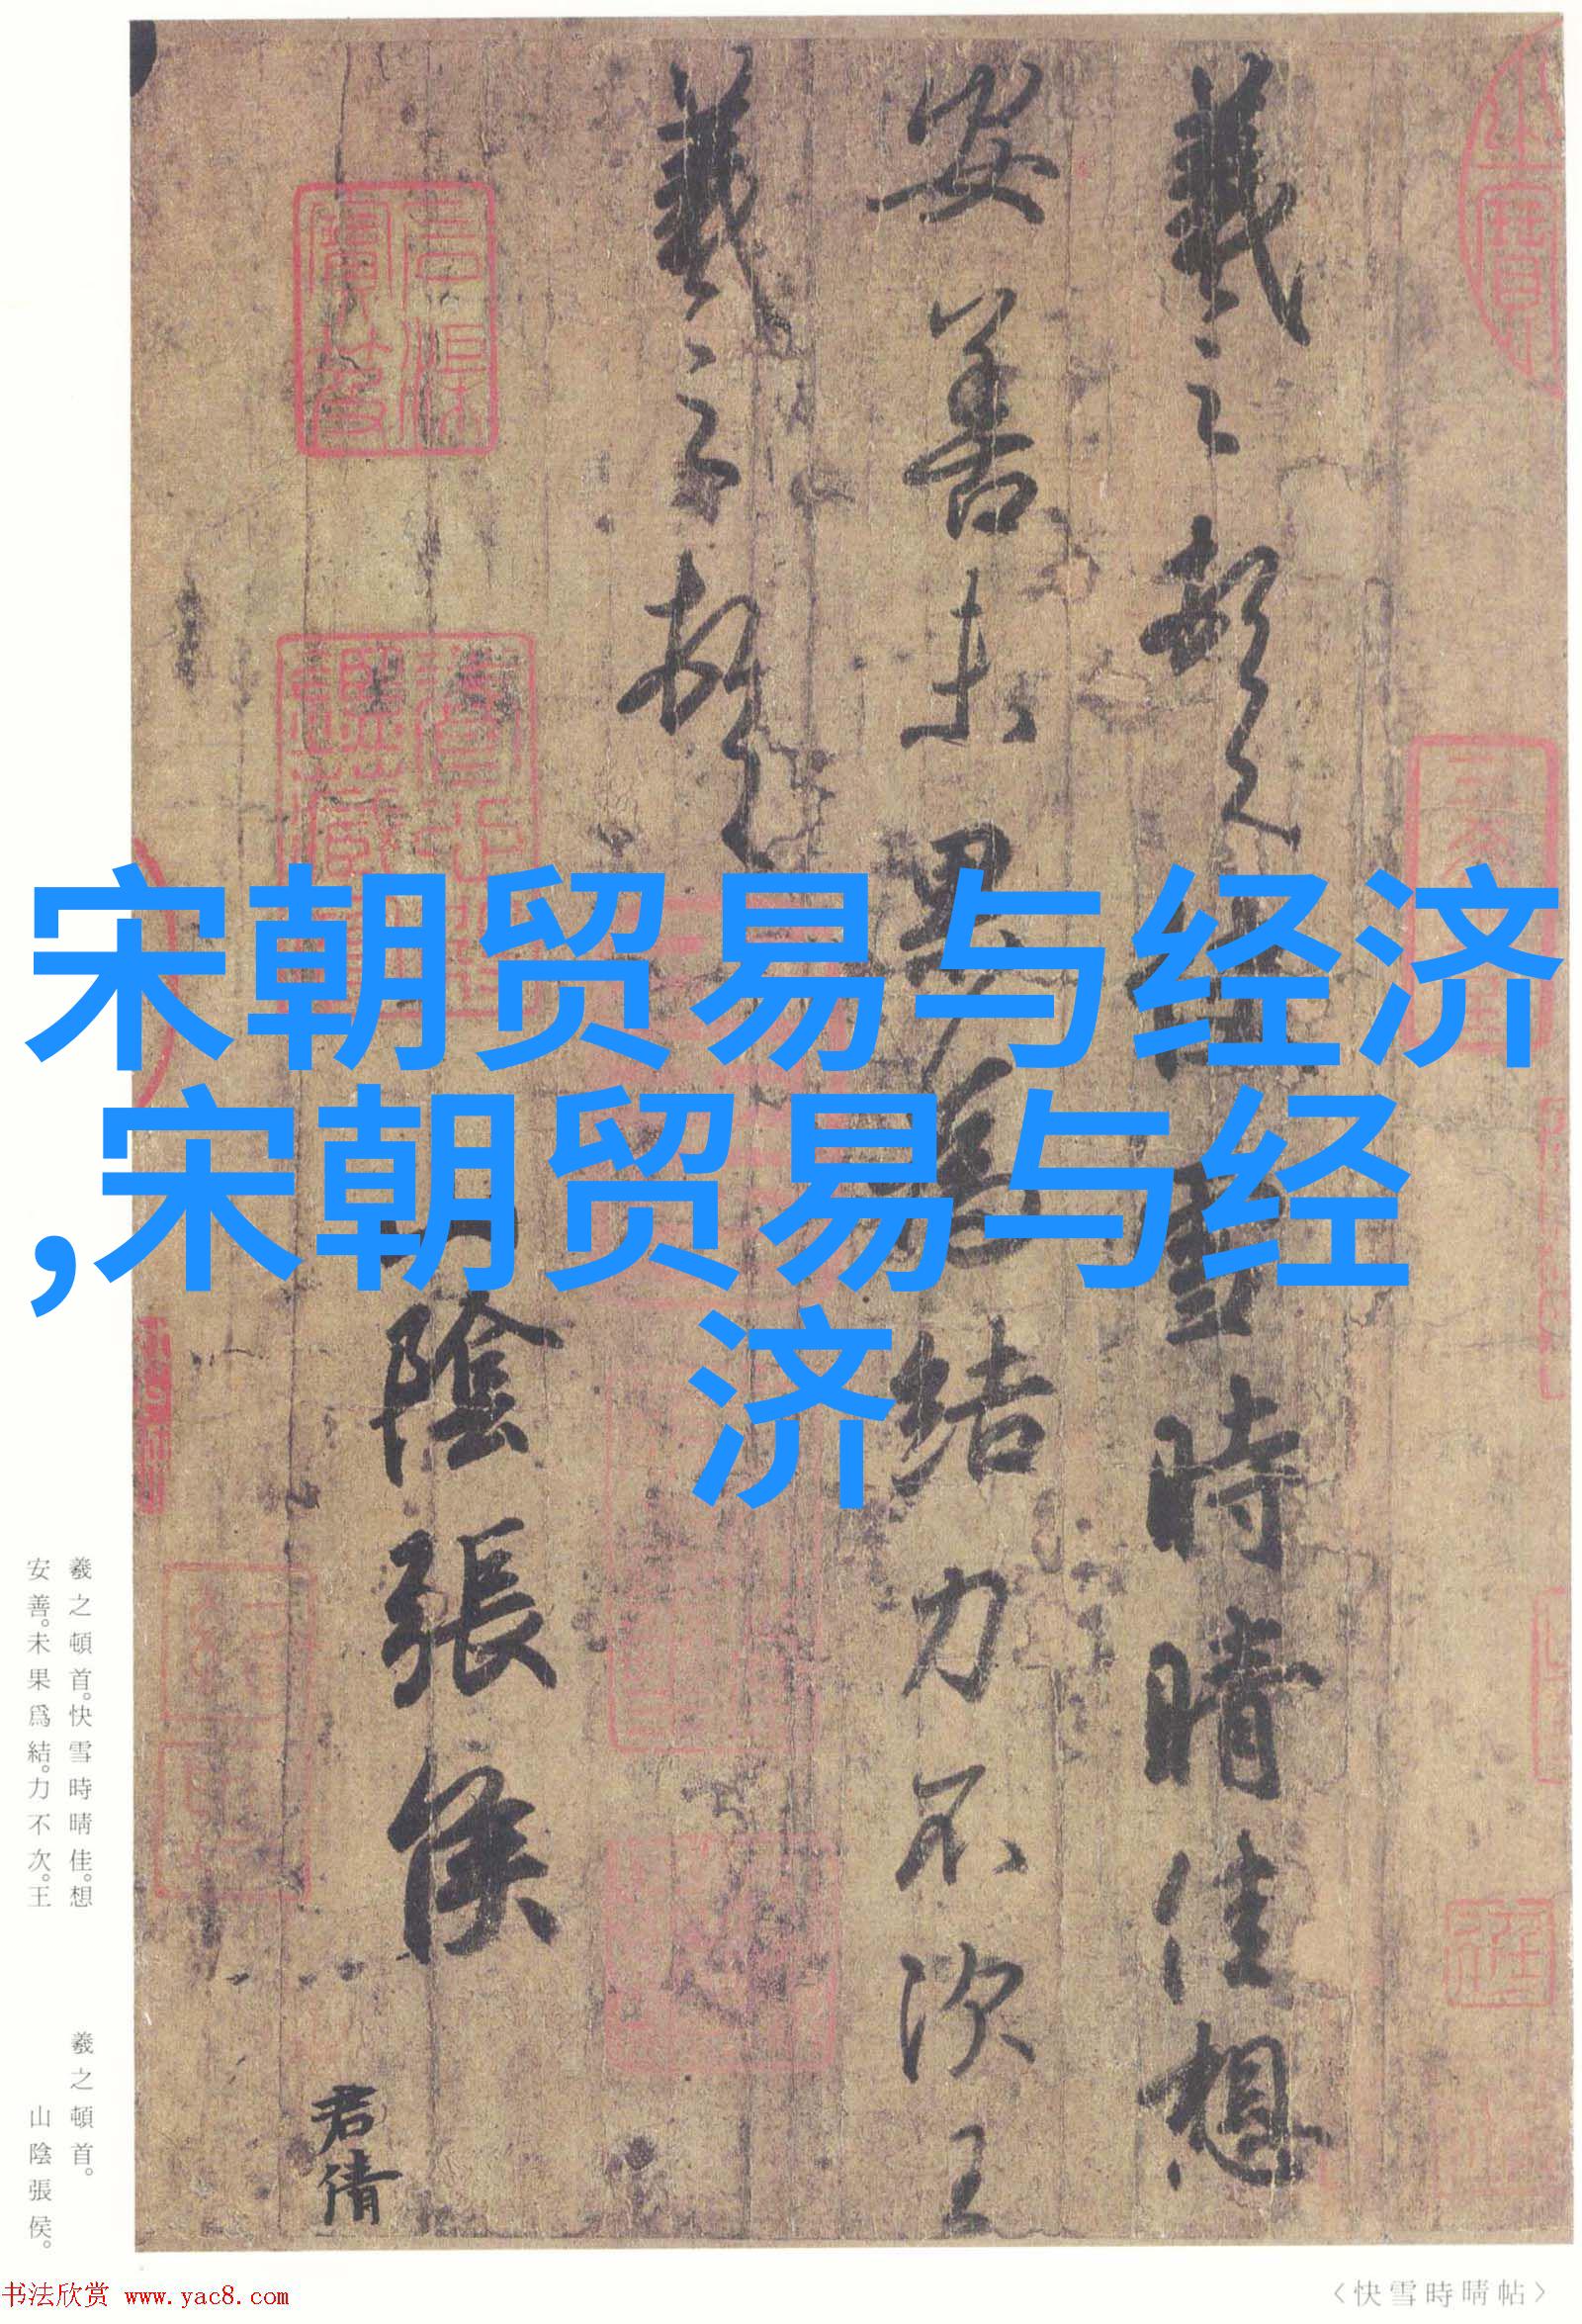 羲之頓首快雪時晴佳想
安善未果為結力不次王
羲之頓首
山陰張侯
君倩
宋朝贸易与经济
,宋朝贸易与经
济
羲之頓首。快雪時晴佳。想
安善。未果爲結。力不次。王
羲之頓首。
山陰張侯。
书法欣赏 www.yac8.com
〈快雪時晴帖〉